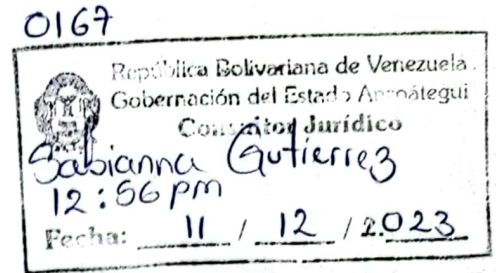 0167
República Bolivariana de Venezuela
Gobernación del Estado Anzoátegui
Consultor Jurídico
Sabianna Gutierrez
12:56 pm
Fecha: 11 / 12 / 2023